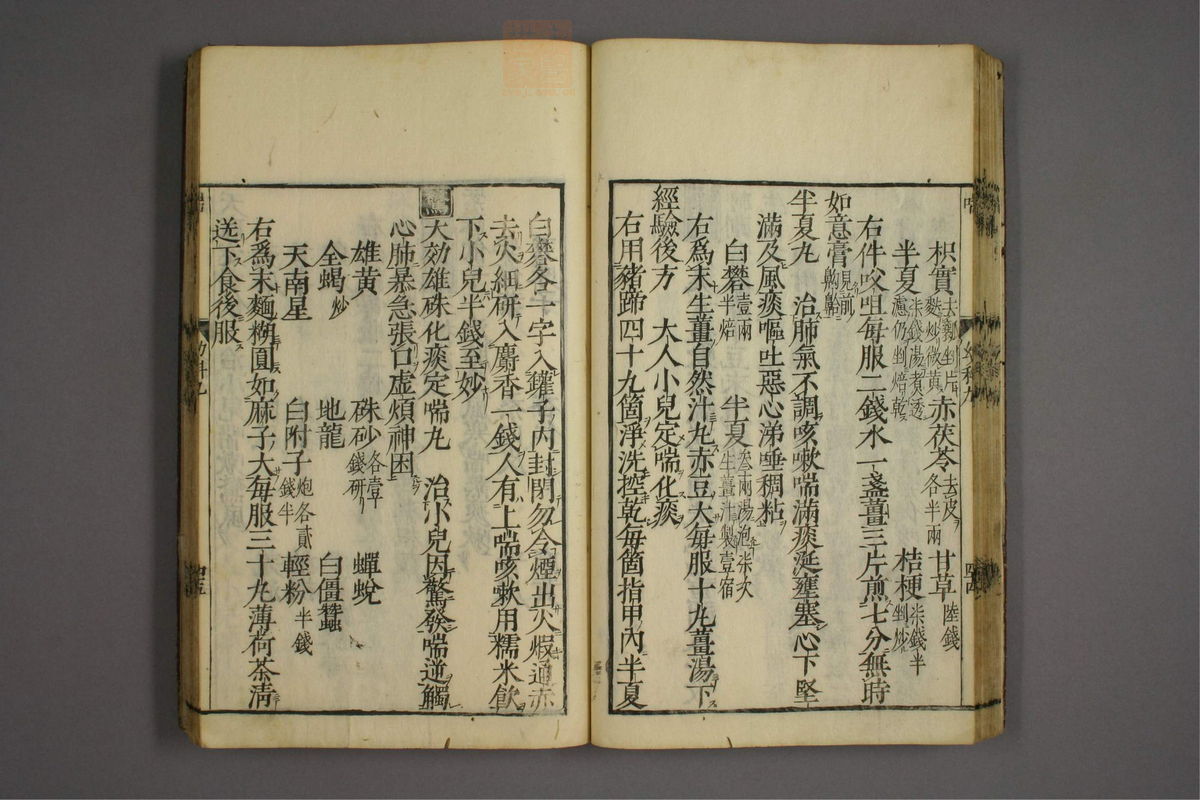 枳實去瓤剉片麩炒微黃赤茯苓去皮各半兩甘草陸錢
半夏柒錢湯煮透濾仍剉焙乾桔梗柒錢半剉炒
右件㕮咀每服二錢水一盞薑三片煎七分無時
如意膏見前齁䶎
半夏丸治肺氣不調咳嗽喘滿痰涎壅塞心下堅
滿及風痰嘔吐惡心涕唾稠粘
白礬壹兩半焙半夏叁兩湯泡柒次生薑汁製壹宿
右爲末生薑自然汁丸赤豆大每服十丸薑湯下
經驗後方大人小兒定喘化痰
右用豬蹄四十九箇淨洗控乾每箇指甲內半夏
白礬各一字入鑵子內封閉勿令煙出火煆通赤
去火細研入麝香一錢人有上喘咳嗽用糯米飲
下小兒半錢至妙
大効雄硃化痰定喘丸治小兒因驚發喘逆觸
心肺暴急張口虛煩神困
雄黃硃砂各壹錢研蟬蛻
全蝎炒地龍白僵蠶
天南星白附子炮各貳錢半輕粉半錢
右爲末麵糊圓如麻子大每服三十丸薄荷茶清
送下食後服
幼科九
四五